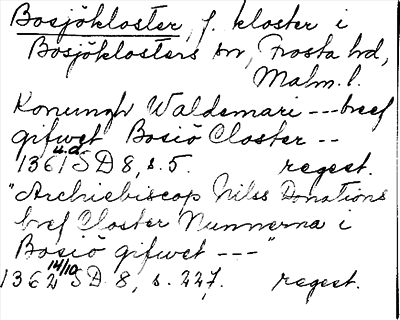 Bosjökloster, f. kloster i
Bosjöklosters sn, Frosta hd,
Malm. l.
Konungh Waldemari --- breef
gifwet Bosiö Closter --
1361 u.d. SD 8, s. 5. regest.
"Archiebiscop Nilss Donations
bref Closter Nunnerna i
Bosiö gifwet ---"
1362 14/10 SD 8, s. 227. regest.